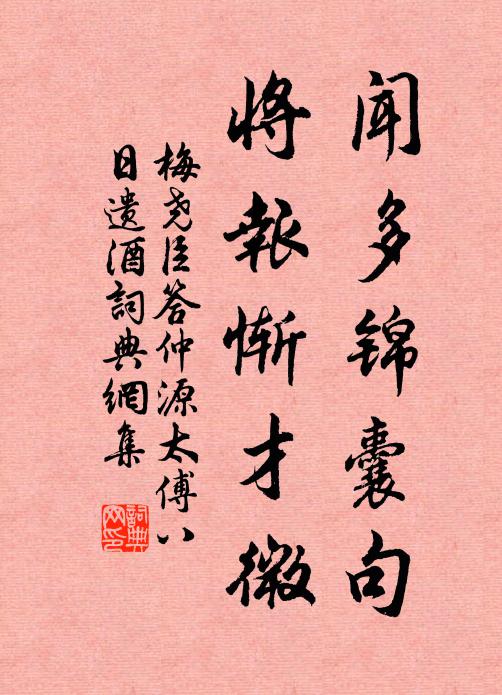 闻多锦囊句
将報慚才微
梅尧臣答仲源太傅八
日遗酒詞典網集
詞典网印